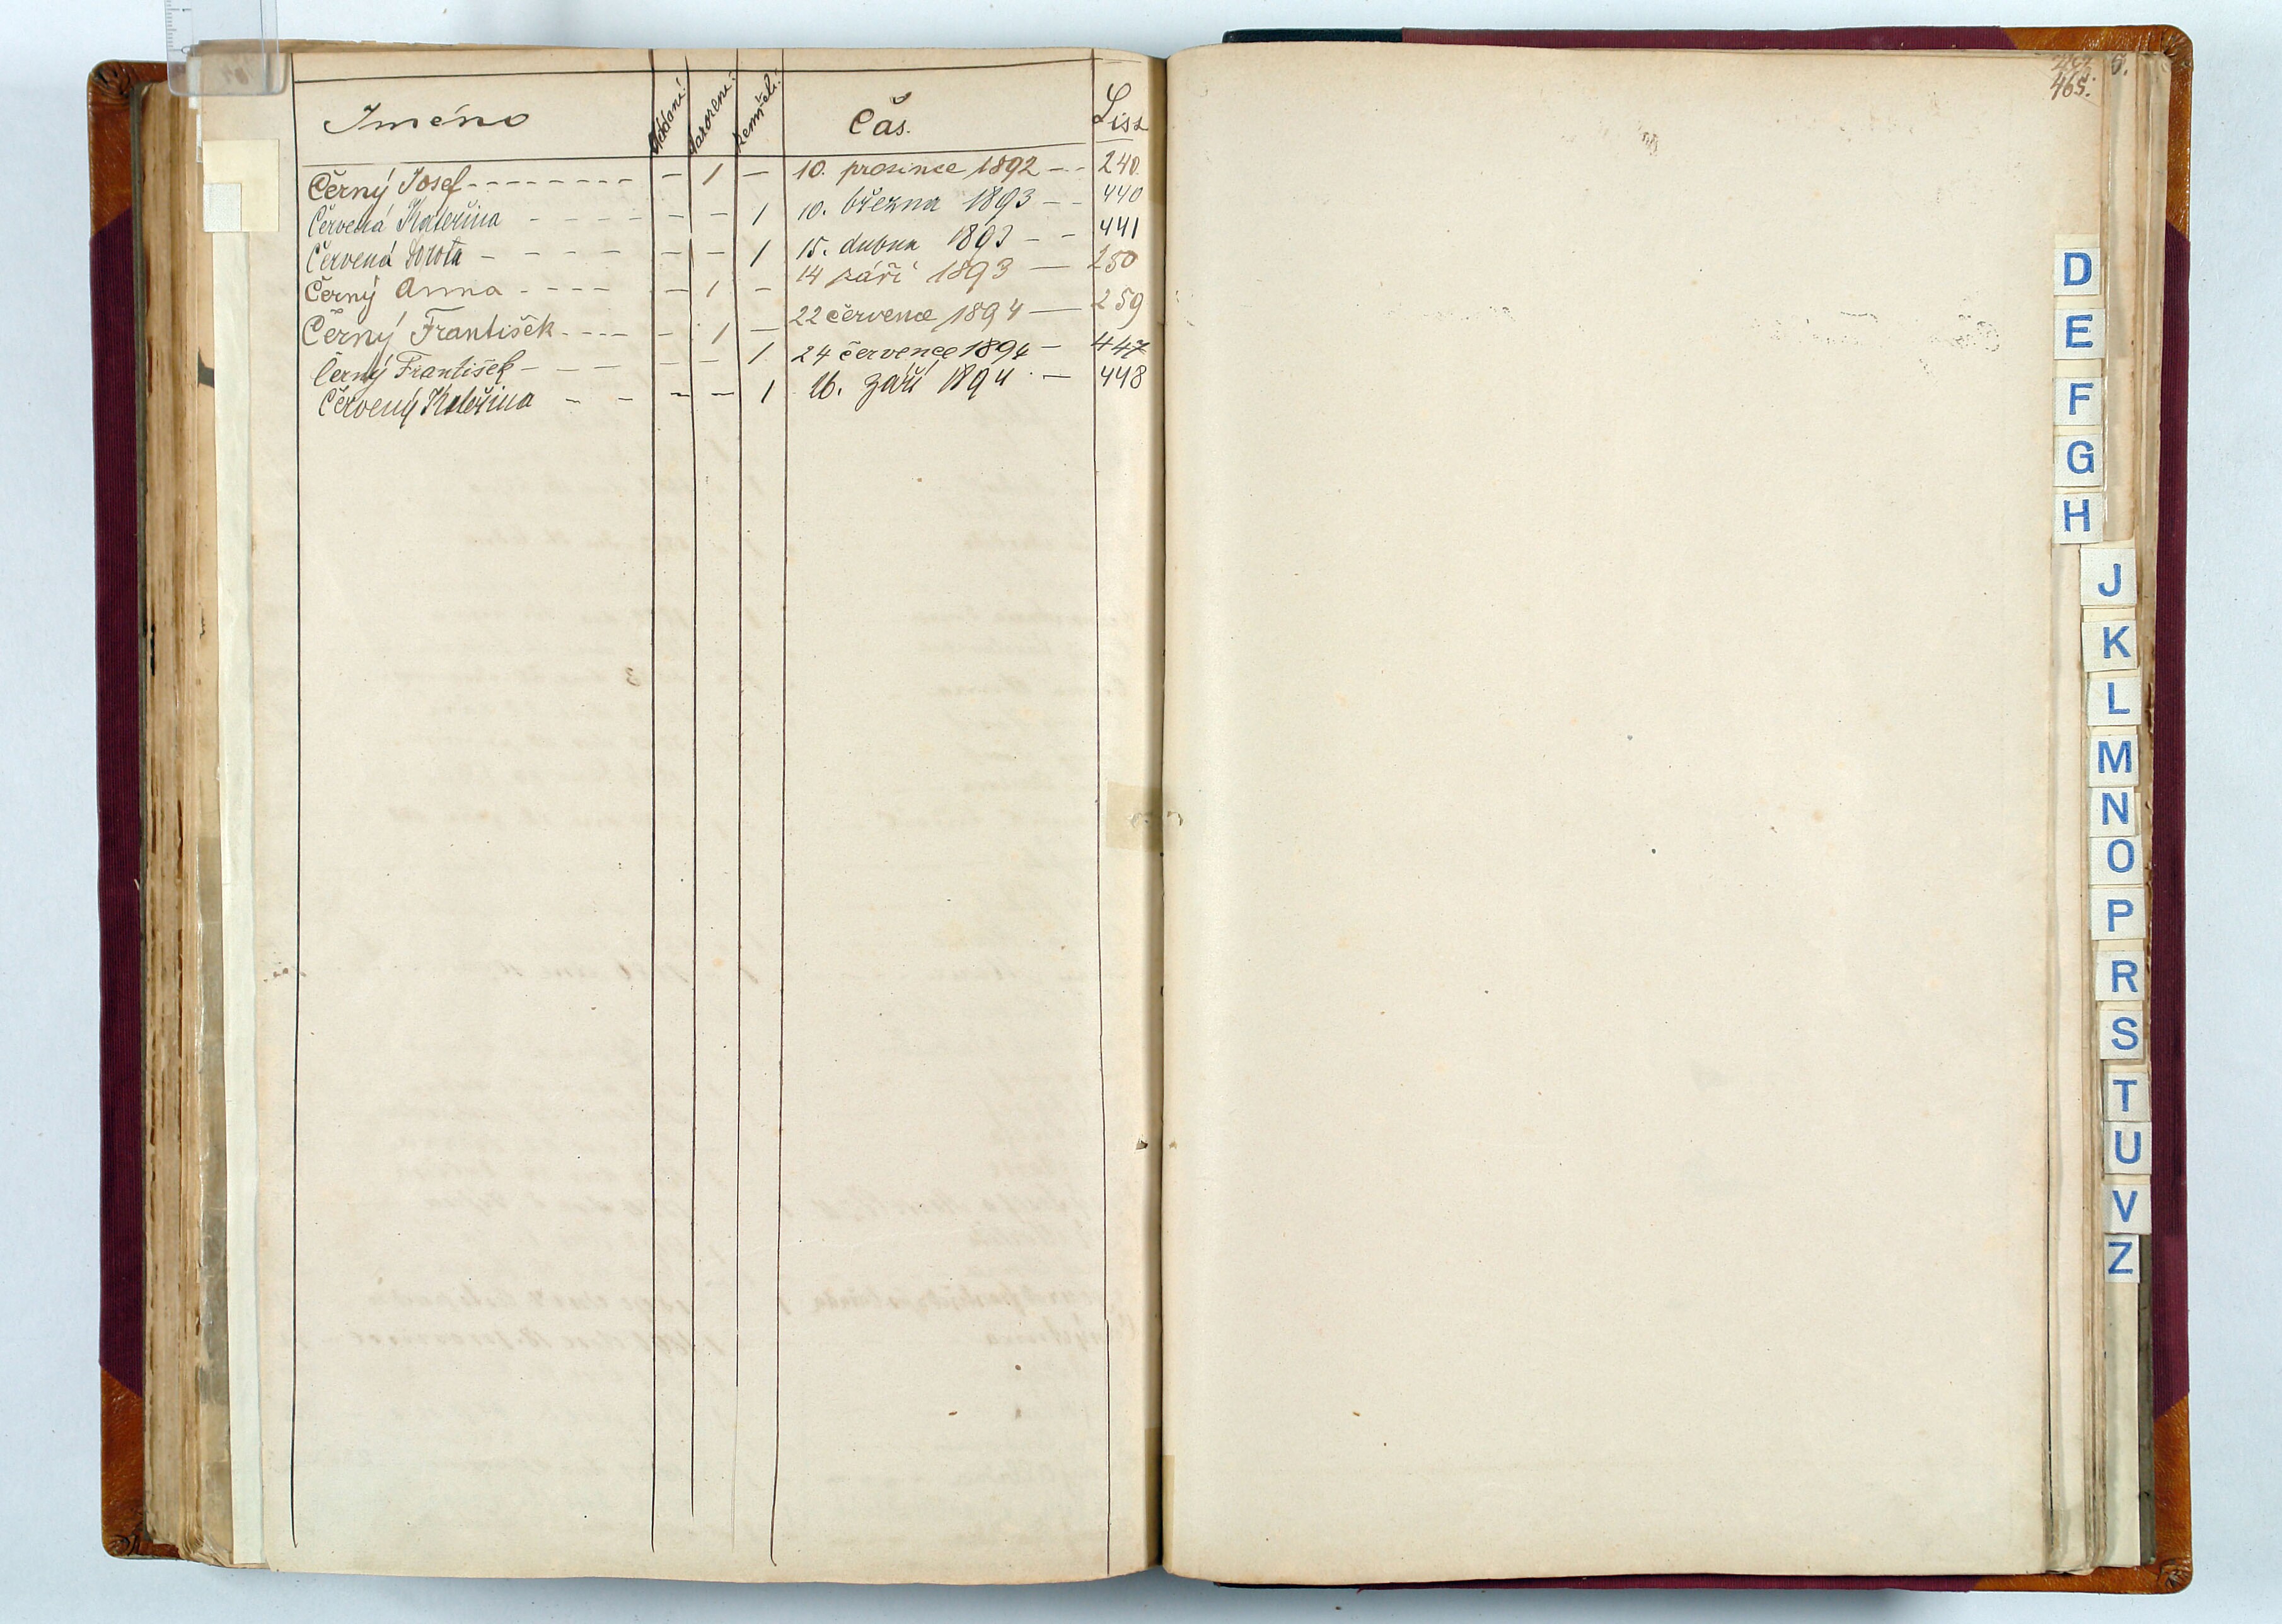 Jméno Oddaní. Narození. Zemřelí. Čas. List
Černý Josef - - - - - - - - - 1 — 10. prosince 1892 - - 240.
Červená Kateřina - - - - - - - 1 10. března 1893 - - 440
Červená Dorota - - - - - - 1 15. dubna 1893 - - 441
Černý Anna - - - - - 1 - 14 září 1893 — 250
Černý František - - - - - 1 — 22 července 1894 — 259
Černý František - - - - - - 1 24 července 1894 — 447
Červený Kateřina - - - - 1 16. září 1894 — 448
465.
D
E
F
G
H
J
K
L
M
N
O
P
R
S
T
U
V
Z